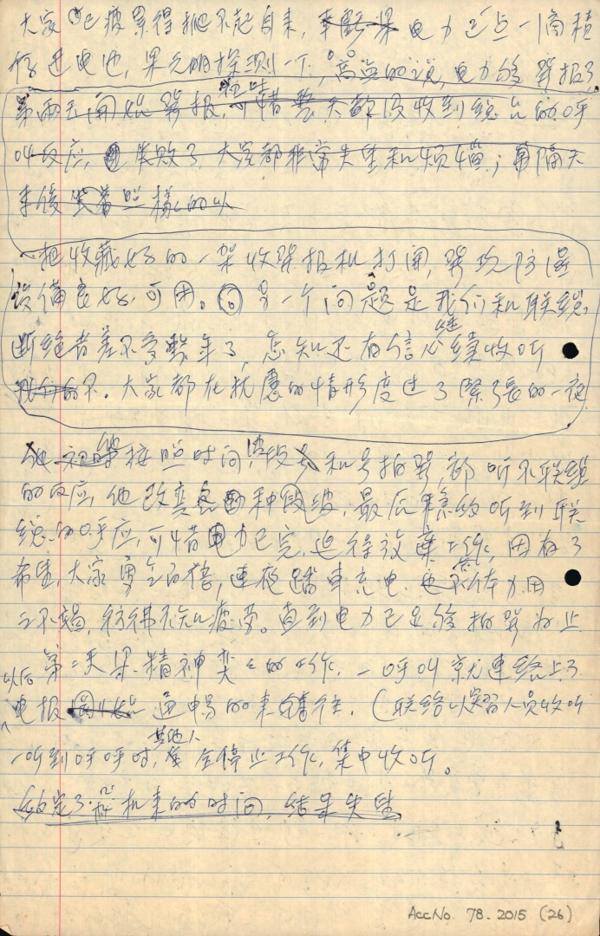 大家已疲累得抓不起自来，电力已点一滴积
存进电池，果允明探测一下，高兴的说，电力够发报了
第两天开始发报，可惜整天都没收到总台的呼
叫反应，失败了，大家都非常失望和烦恼；第隔天
来后照样的
把收藏好的一架收发报机打开，发现防湿
设备良好，可用。另一个问题是我们和联络
断绝者差不多数年了，怎知还有信心继续收听
不。大家都在忧虑的情形度过了紧张的一夜
他按照时间，和号拍发，都听不联络
的反应，他改变各种段波，最后果然听到联
络的呼应，可惜电力已完，迫得放弃工作，因有了
希望，大家勇气百倍，连夜踏车充电，体力用
之不竭，彷彿不知疲劳。直到电力已足够拍发为止
以后第二天果精神奕奕的工作，一呼叫就连络上了
电报通畅的来往。（联络以实习人员收听
一听到呼呼时，其他人全停止工作，集中收听。
约定了机来的时间，结果失望
AccNo. 78-2015 (26)